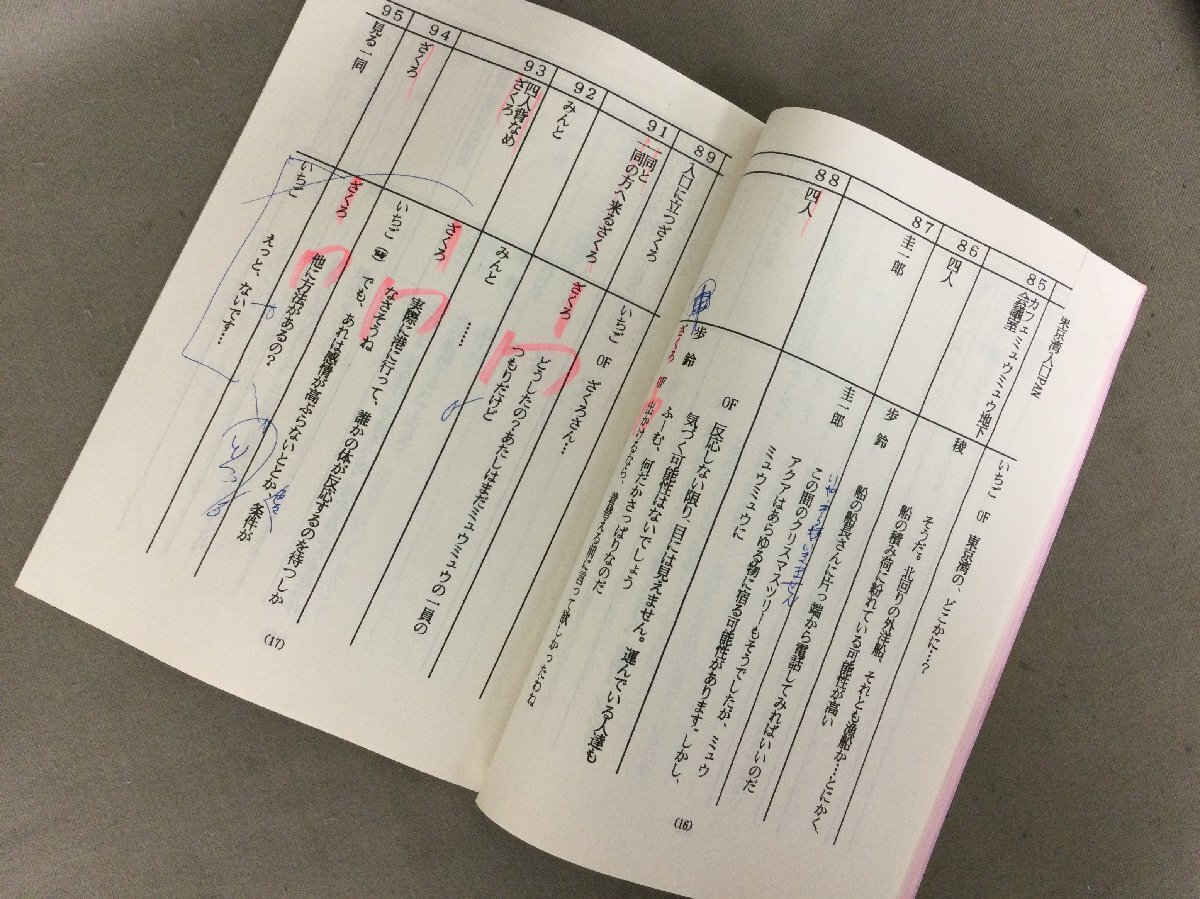 東京湾入口PAN
いちご OF 東京湾の、どこかに…?
85
カフェミュウミュウ地下
会議室
稜
そうだ。北回りの外洋船、それとも漁船か…とにかく
船の積み荷に紛れている可能性が高い
86
四人
歩鈴
船の船長さんに片っ端から電話してみればいいのだ
87
圭一郎
圭一郎
この間のクリスマスツリーもそうでしたが、ミュウ
アクアはあらゆる物に宿る可能性があります。しかし、
ミュウミュウに
88
四人
OF 反応しない限り、目には見えません。運んでいる人達も
気づく可能性はないでしょう
歩鈴
ふーむ、何だかさっぱりなのだ
ざくろ
出かけるなら、着替える前に言って欲しかったわね
(16)
89
入口に立つざくろ
いちご OF ざくろさん…
91
一同と
一同の方へ来るざくろ
ざくろ
どうしたの?あたしはまだミュウミュウの一員の
つもりだけど
92
みんと
みんと
……
93
四人背なめ
ざくろ
ざくろ
実際に港に行って、誰かの体が反応するのを待つしか
なさそうね
いちご
でも、あれは感情が高ぶらないととか、条件が
94
ざくろ
ざくろ
他に方法があるの?
95
見る一同
いちご
えっと、ないです…
(17)